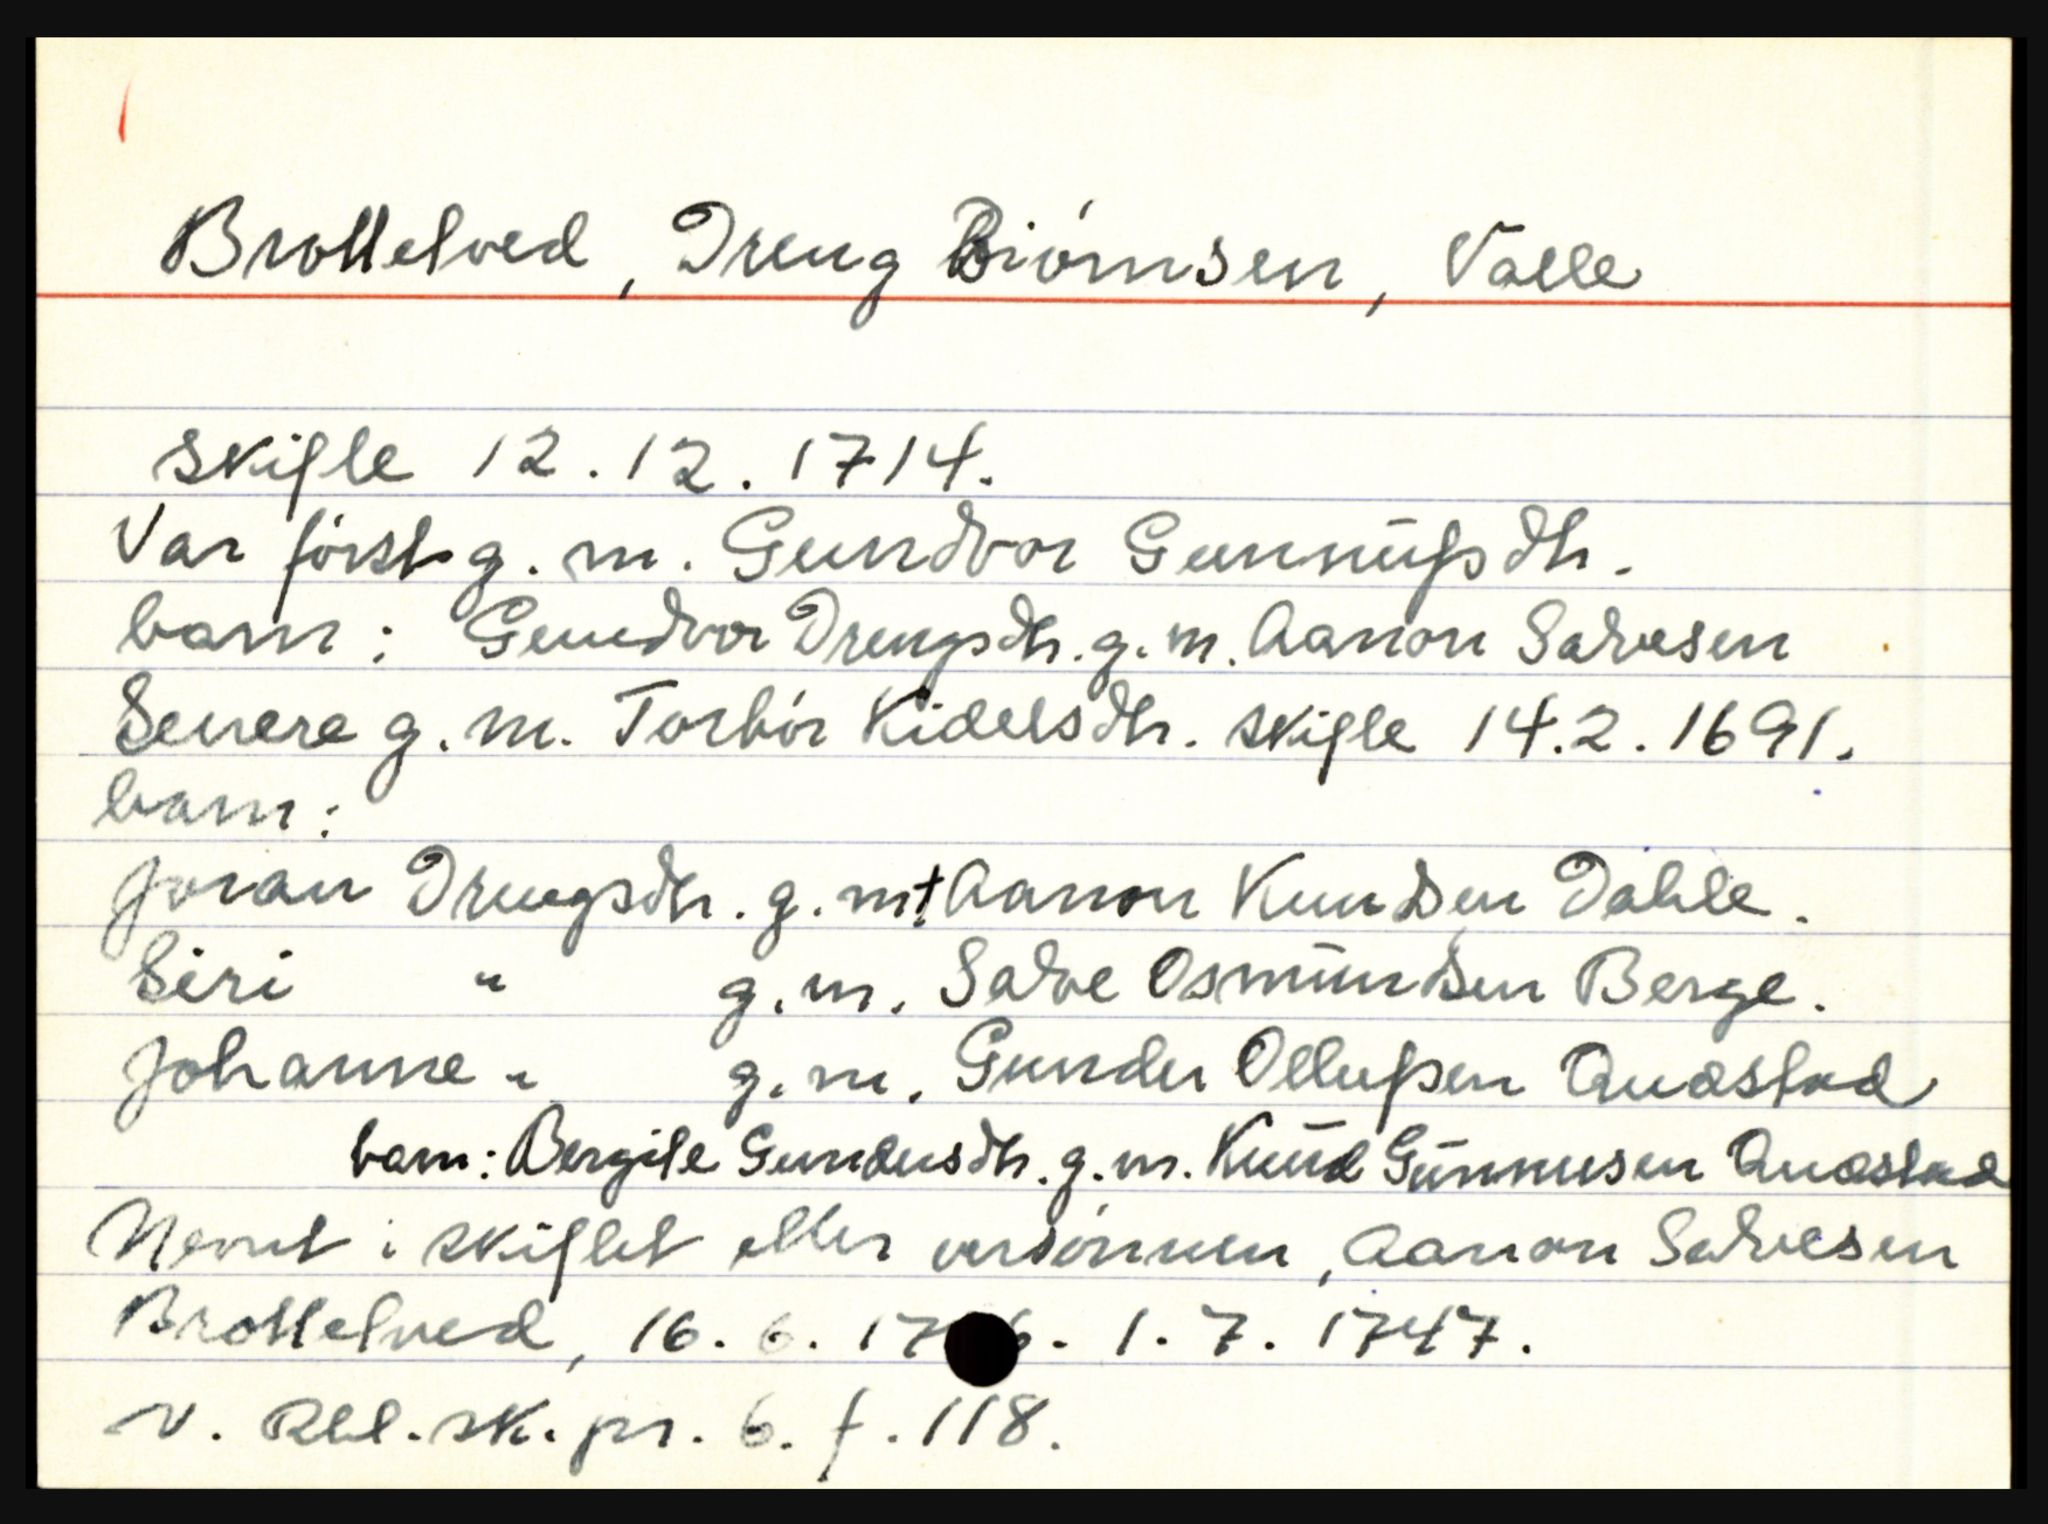 Brottelved, Dreng Biórnsen, Valle
skifte 12.12.1714.
Var først g. m. Gundvor Gunnŭfsdtr.
barn: Gundvor Drengsdtr. g. m. Aanon Salvesen
Senere g. m. Torbór Kidelsdtr. skifte 14.2.1691.
barn:
Joran Drengsdtr. g. m † Aanon Knudsen Dahle.
Siri " g. m. Salve Osmŭndsen Berge.
Johanne " g. m. Gunder Ollufsen Quastad
barn: Bergite Gundersdtr. g. m. Knŭd Gŭnnusen Quastad
Nevnt i skiftet etter versónnen, Aanon Salvesen
Brottelved, 16. 6. 1. 7. 1747.
v. Rbl. sk. pr. 6. f. 118.